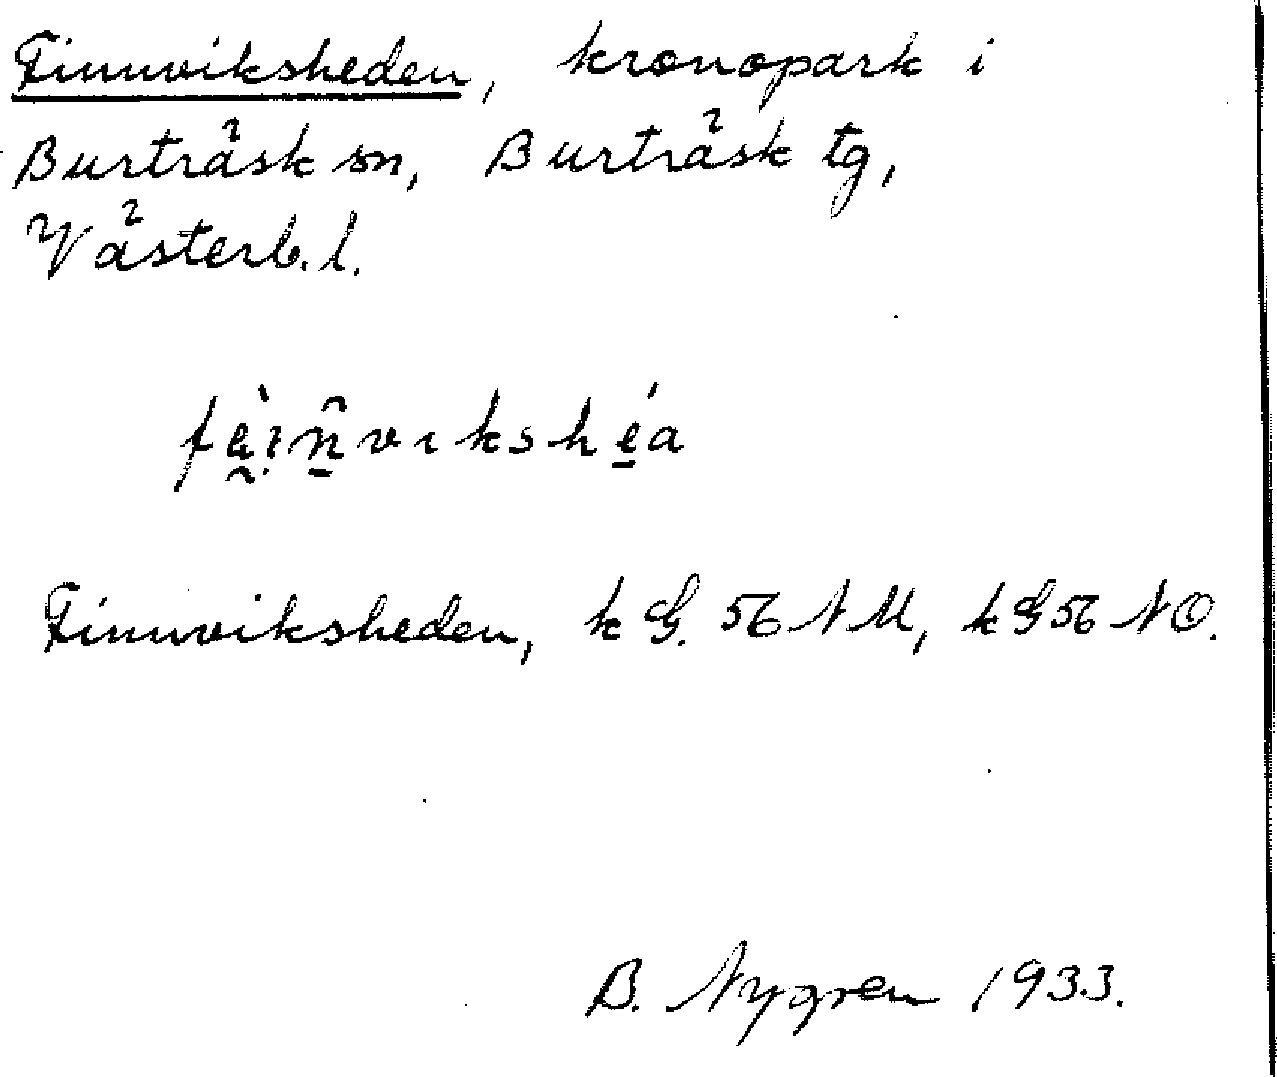 Finnviksheden, kronopark i
Burträsk sn, Burträsk tg,
Västerb. l.
fè̤ịn̠̂vɩkshé̠a
Finnviksheden, k G. 56 NM, k G 56 NO.
B. Nygren 1933.